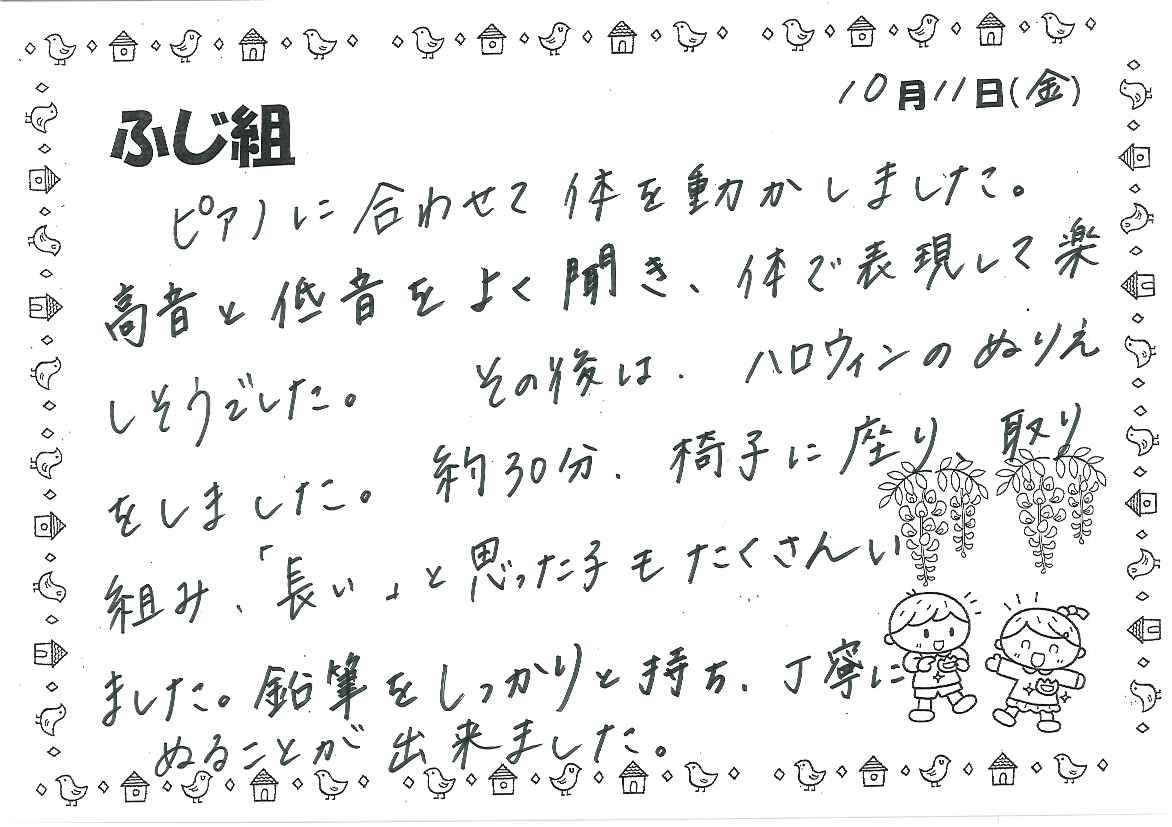 10月11日(金)
ふじ組
ピアノに合わせて体を動かしました。
高音と低音をよく聞き、体で表現して楽
しそうでした。 その後は、ハロウィンのぬりえ
をしました。約30分、椅子に座り、取り
組み、「長い」と思った子もたくさんい
ました。鉛筆をしっかりと持ち、丁寧に
ぬることが出来ました。